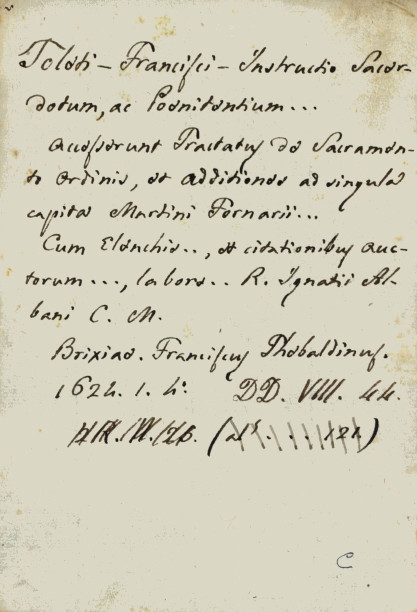 Toleti - Francisci - Instructio Sacer-
dotum, ac Poenitentium...
accesserunt Tractatus de Sacramen-
to Ordinis, et additiones ad singula
capita Martini Fornarii...
Cum Elenchis.., et citationibus auc-
torum..., labore.. R. Ignatii Al-
bani C. M.
Brixiae. Franciscus Thebaldinus.
1624. 1. 4.º DD. VIII. 44.